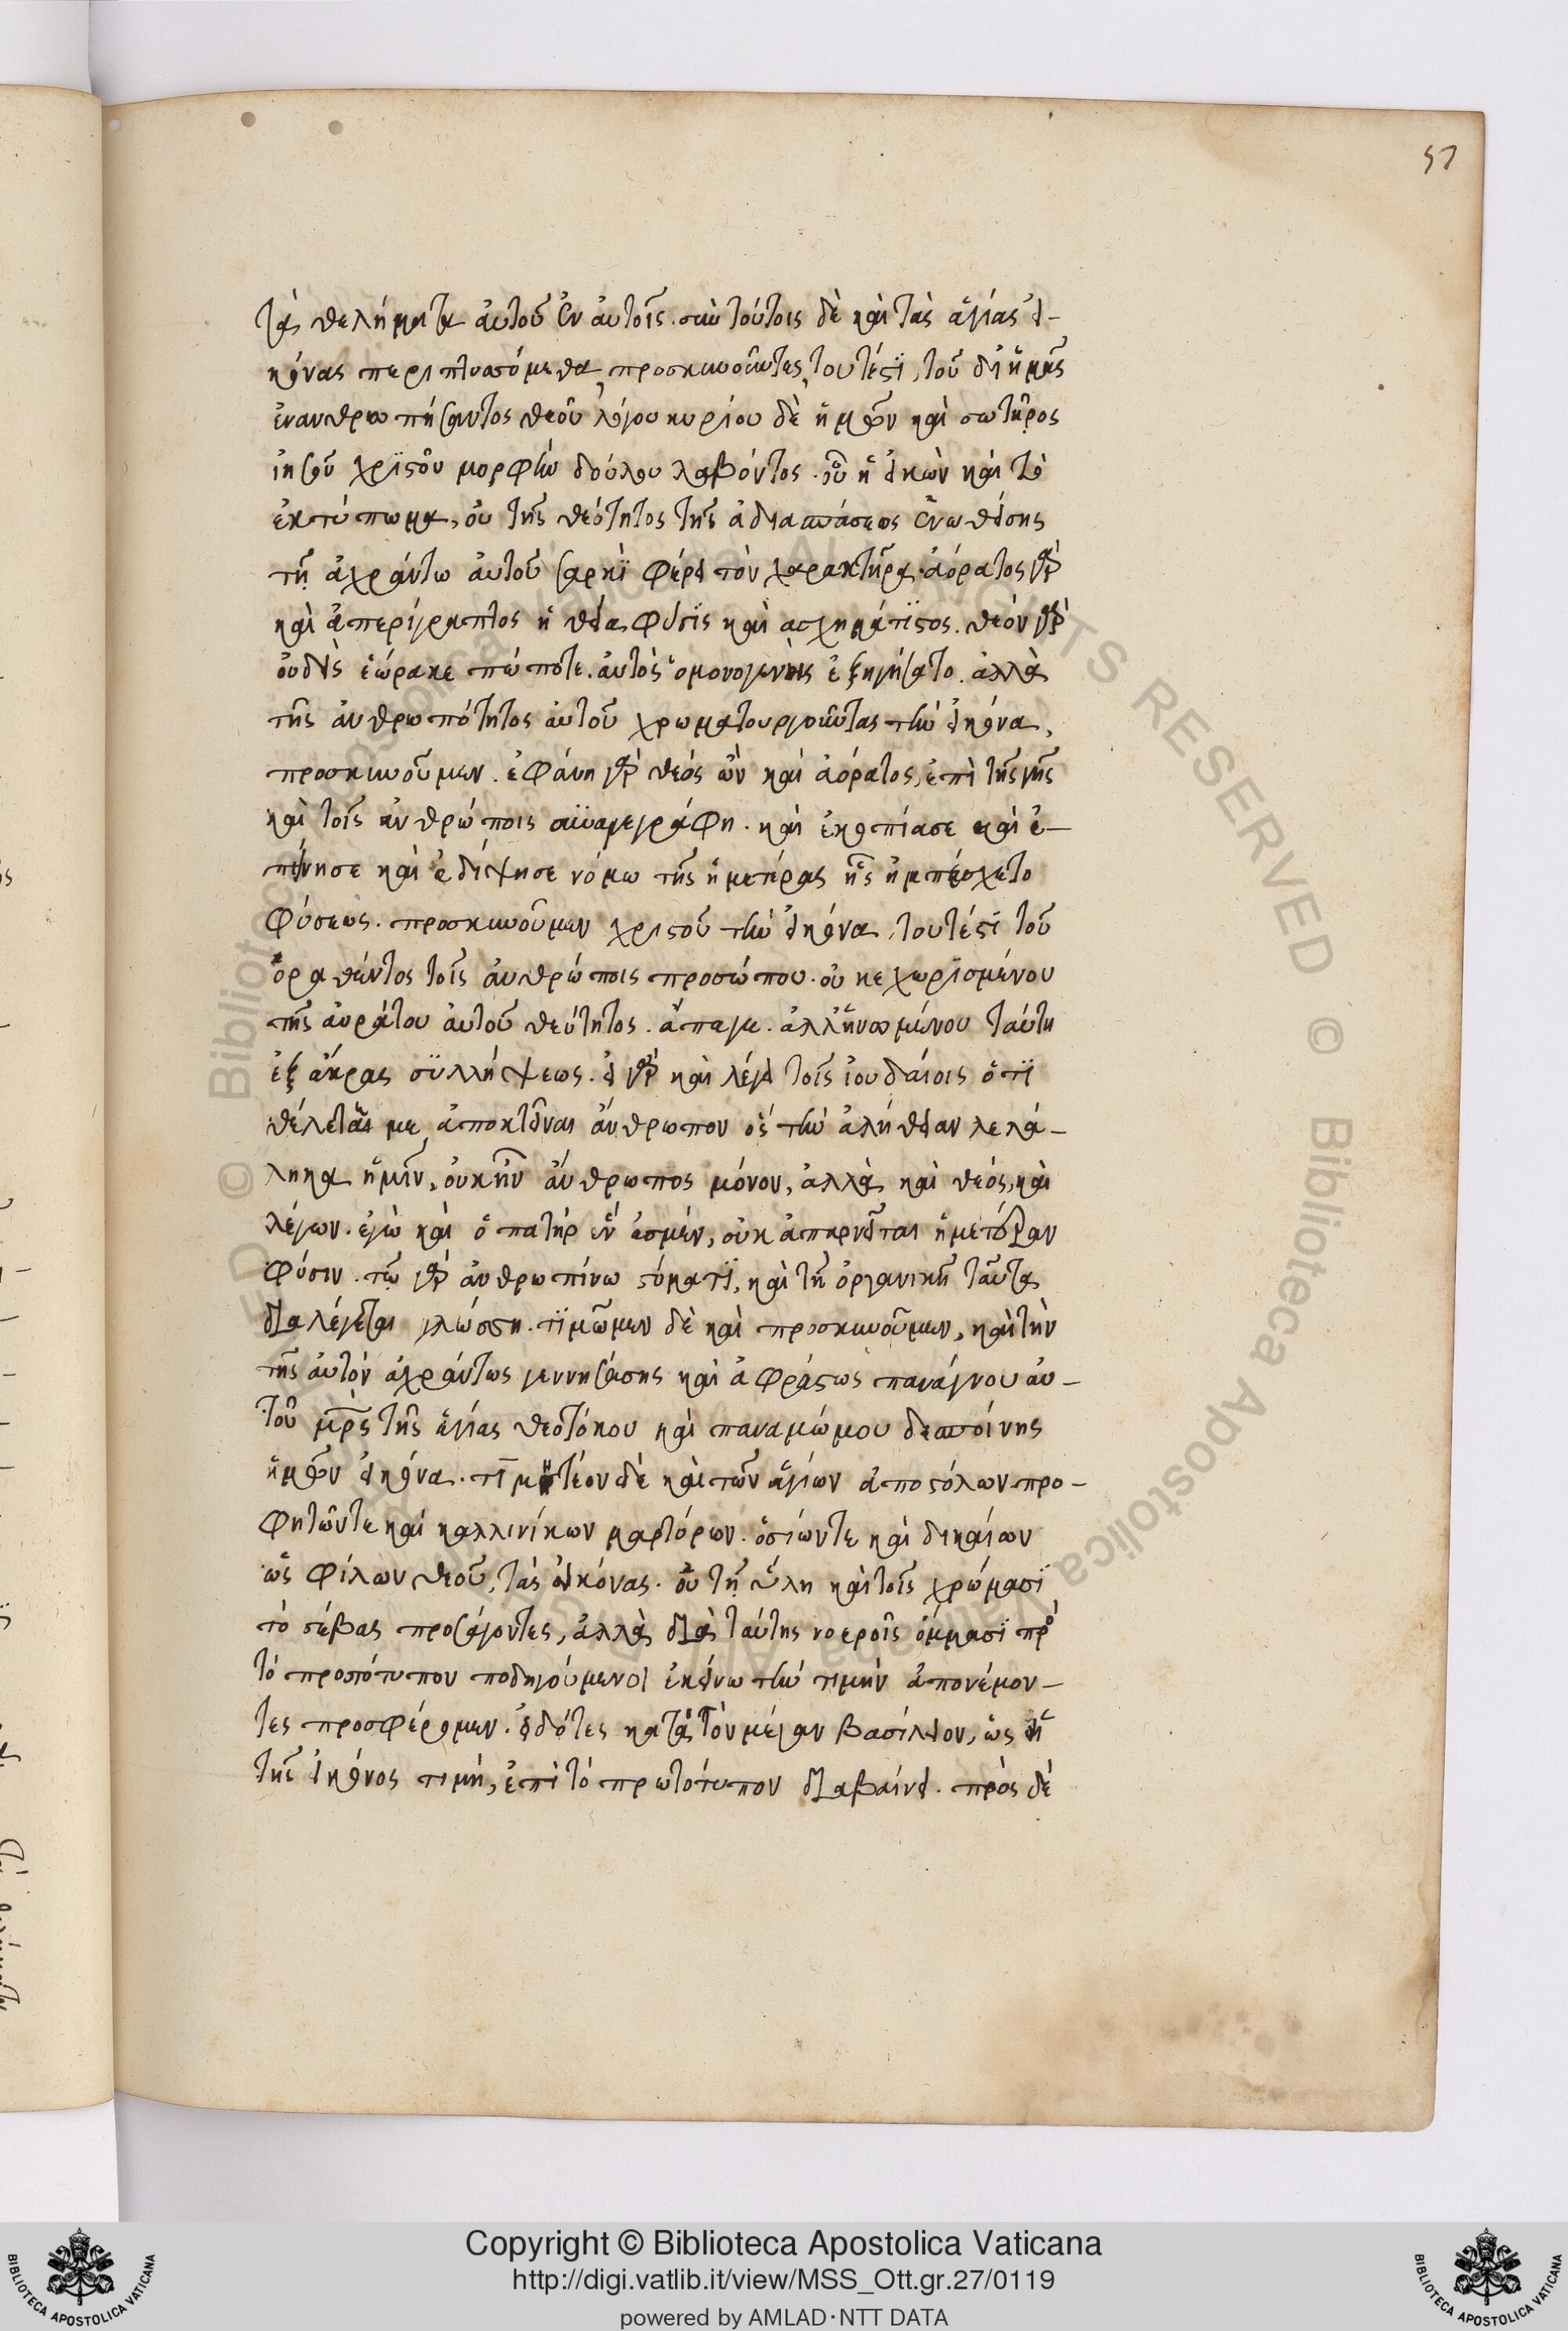 57
τὰ θελήματα αὐτοῦ ἐν αὐτοῖς. σὺν τούτοις δὲ καὶ τὰς ἁγίας εἰ-
κόνας περιπτυσόμεθα, προσκυνοῦντες, τουτέστϊ, τοῦ δι' ἡμᾶς
ἐνανθρωπήσαντος θεοῦ λόγου κυρίου δὲ ἡμῶν καὶ σωτῆρος
ἰησοῦ χρϊστοῦ μορφὴν δούλου λαβόντος. οὗ ἡ εἰκὼν καὶ τὸ
ἐκτύπωμα, οὐ τῆς θεότητος τῆς ἀδιασπάστως ἑνωθείσης
τῇ ἀχράντω αὐτοῦ σαρκὶ φέρει τὸν χαρακτῆρα. ἀόρατος γὰρ
καὶ ἀπερίγραπτος ἡ θεία φύσϊς καὶ ασχημάτϊστος. θεόν γὰρ
οὐδεὶς ἑώρακε πώποτε. αὐτὸς ὁμονογενὴς ἐξηγήσατο. ἀλλὰ
τῆς ἀνθρωπότητος αὐτοῦ χρωματουργοῦντας τὴν εἰκόνα,
προσκυνοῦμεν. ἐφάνη γὰρ θεός ὢν καὶ ἀόρατος, ἐπὶ τῆς γῆς
καὶ τοῖς ἀνθρώποις συναγεγράφη. καὶ ἐκοπίασε καὶ ἐ-
πείνησε καὶ ἐδίψησε νόμω τῆς ἡμετέρας ἧς ἠμπέσχετο
φύσεως. προσκυνοῦμεν χριστοῦ τὴν εἰκόνα, τουτέστϊ τοῦ
ὁραθέντος τοῖς ἀνθρώποις προσώπου. οὐ κεχωρϊσμένου
τῆς ἀοράτου αὐτοῦ θεότητος. ἄπαγε. ἀλλ' ἡνωμένου ταύτη
ἐξ ἄκρας συλλήψεως. εἰ γὰρ καὶ λέγει τοῖς ἰουδαίοις ὅτϊ
θέλεται με ἀποκτεῖναι ἄνθρωπον ὃς τὴν ἀλήθειαν λελά-
ληκα ἡμῖν, οὐκ ἦν ἄνθρωπος μόνον, ἀλλὰ καὶ θεός, καὶ
λέγων. ἐγὼ καὶ ὁ πατήρ ἕν ἐσμέν, οὐκ ἀπαρνεῖται ἡμετέραν
φύσιν. τῶ γὰρ ἀνθρωπίνω στόματϊ, καὶ τῆ ὀργανικῆ ταῦτα
διαλέγεται γλώσση. τϊμῶμεν δὲ καὶ προσκυνοῦμεν, καὶ τὴν
τῆς αὐτὸν ἀχράντως γεννησάσης καὶ ἀφράστως πανάγνου αὐ-
τοῦ μρς τῆς ἁγίας θεοτόκου καὶ παναμώμου δεσποίνης
ἡμῶν εἰκόνα. τϊμητέον δὲ καὶ τῶν ἁγίων ἀποστόλων προ-
φητῶντε καὶ καλλινίκων μαρτύρων. ὁσίωντε καὶ δικαίων
ὡς φίλων θεοῦ, τὰς εἰκόνας. οὐ τῆ ὕλη καὶ τοῖς χρώμασϊ
τὸ σέβας προσάγοντες, ἀλλὰ διὰ ταύτης νοεροῖς ὄμμασϊ πρὸς
τὸ προτότυπον ποδηγούμενοι ἐκείνω τὴν τιμὴν ἀπονέμον-
τες προσφέρομεν. εἰδότες κατὰ τὸν μέγαν βασίλειον, ὡς ἡ
τῆς εἰκόνος τιμή, ἐπὶ τὸ πρωτότυπον διαβαίνει. πρὸς δὲ
Copyright © Biblioteca Apostolica Vaticana
http://digi.vatlib.it/view/MSS_Ott.gr.27/0119
powered by AMLAD·NTT DATA